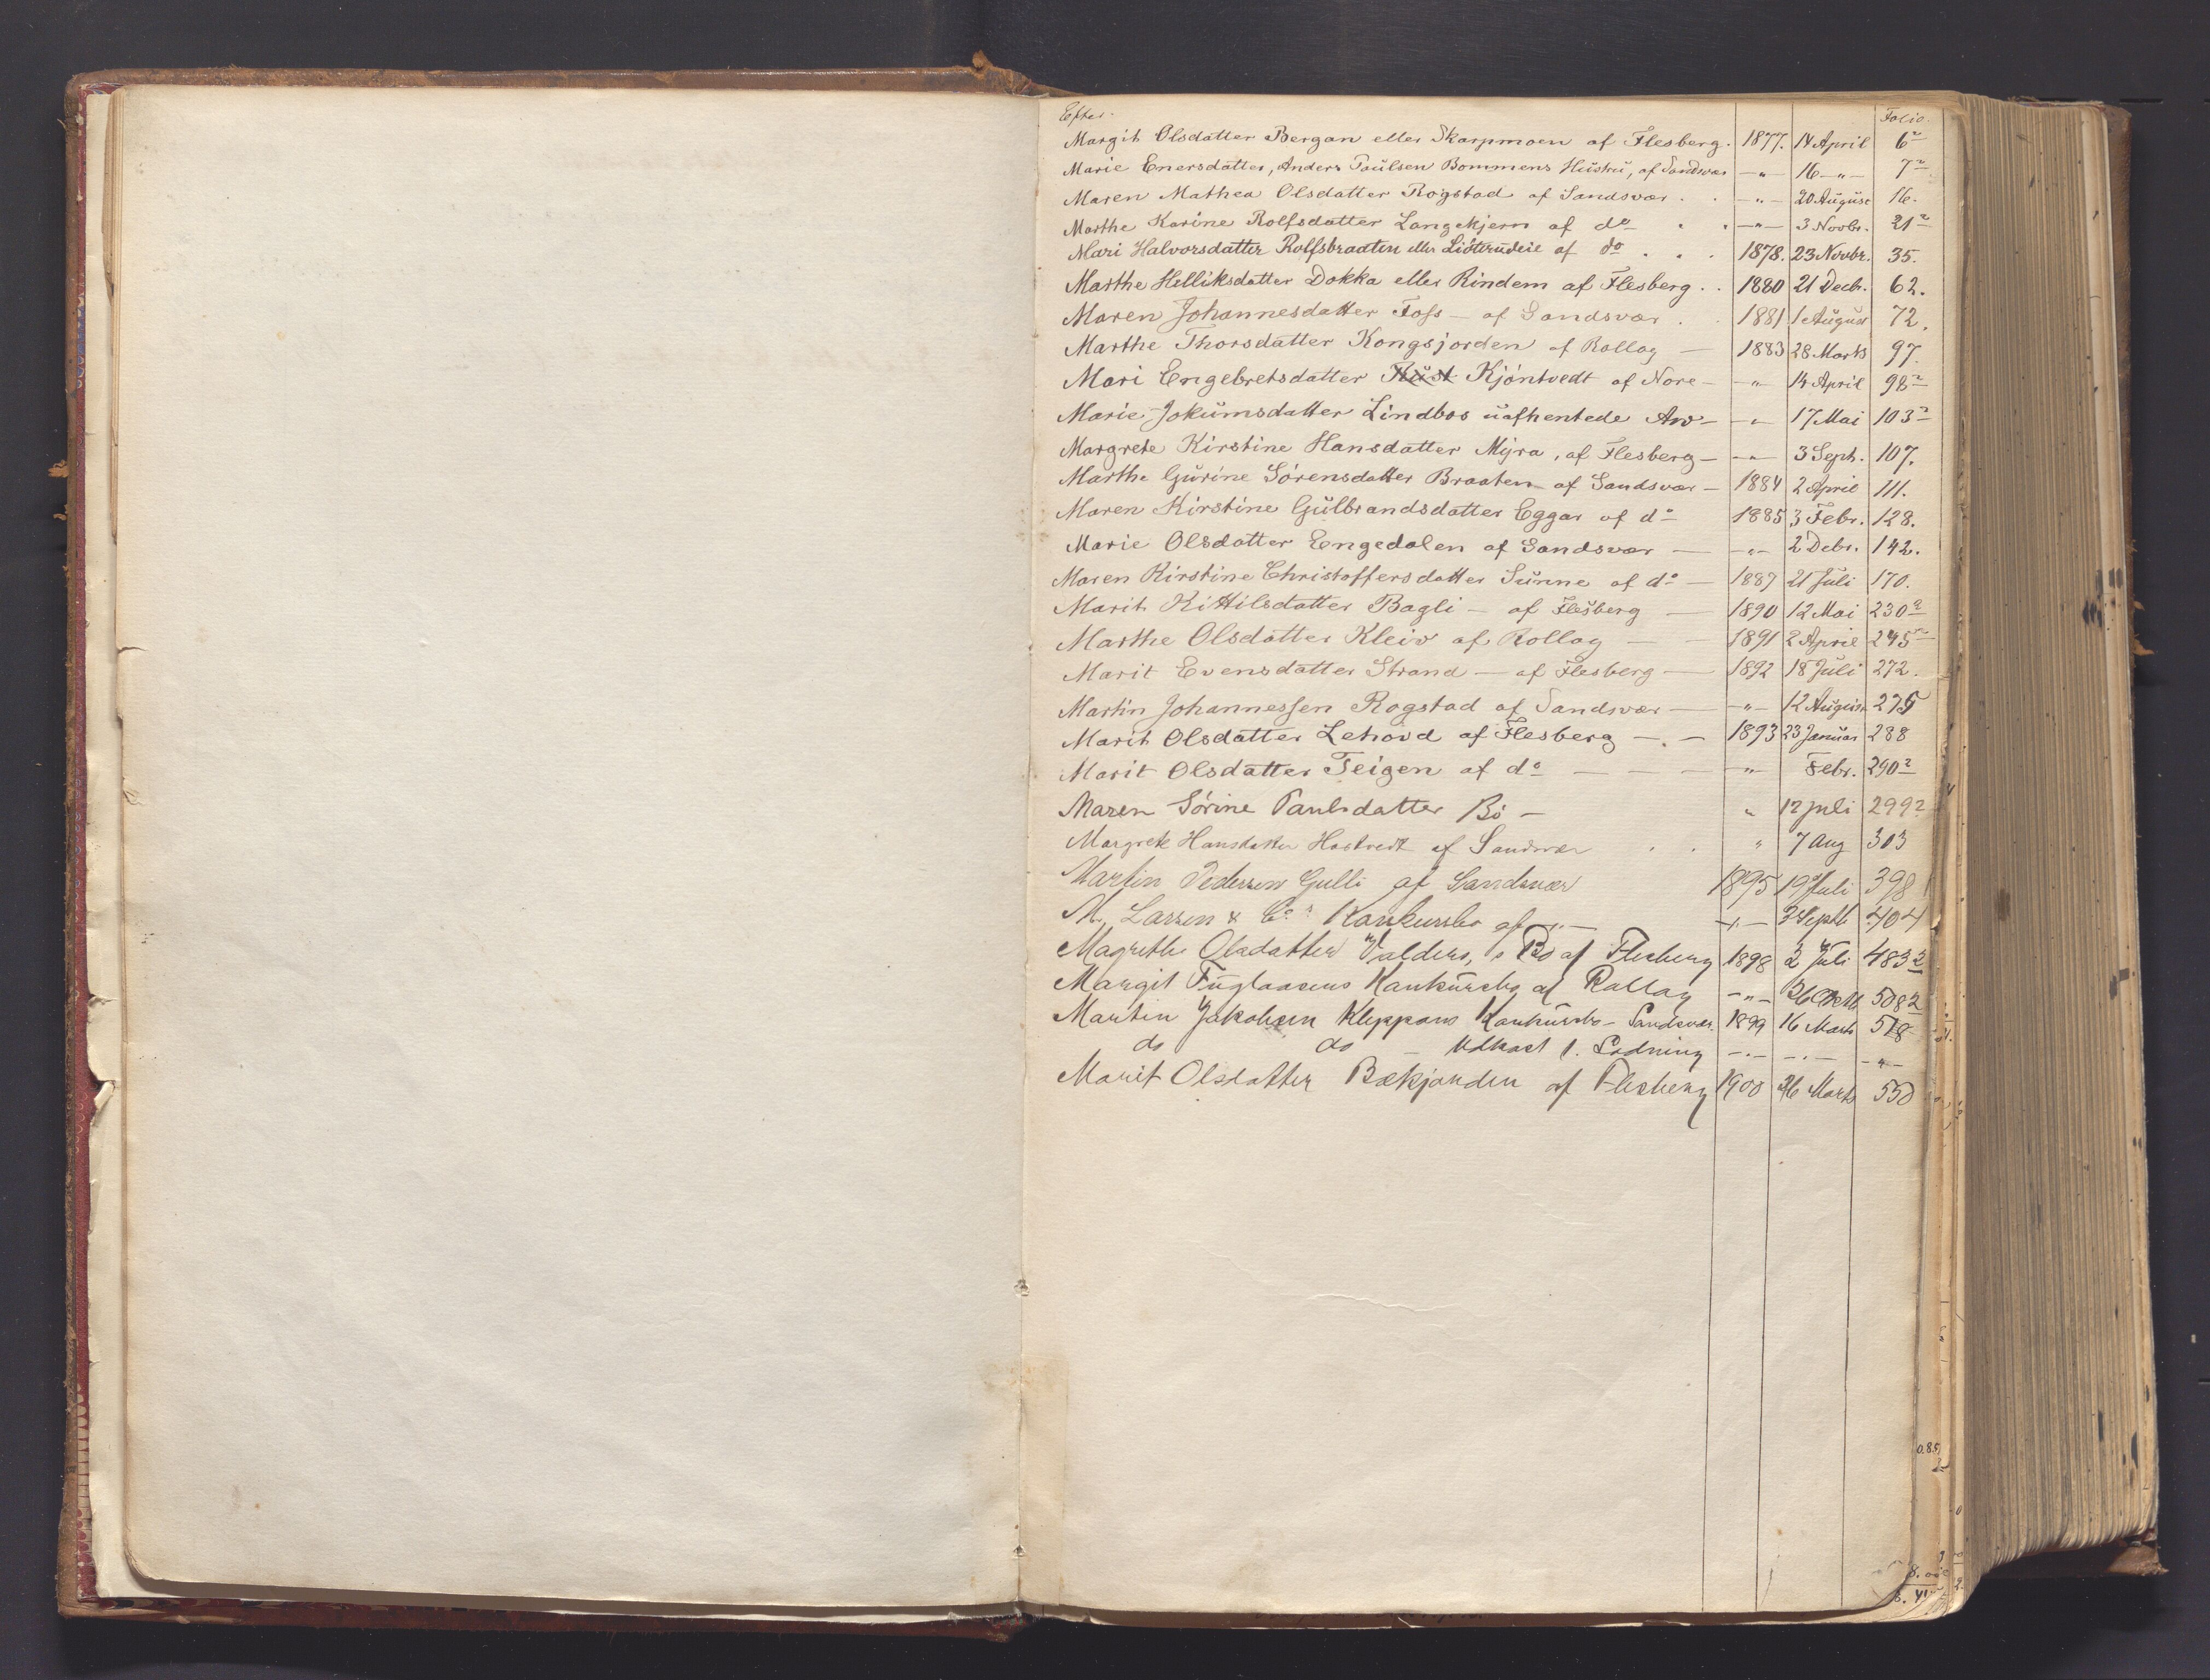 Efter. Folio.
Margit Olsdatter Bergan eller Skarpmoen af Flesberg. 1877. 14 April 6 2
Marie Enersdatter, Anders Paulsen Bommens Hustru, af Sandsvær - " - 16 - " - 7 2
Maren Mathea Olsdatter Rogstad af Sandsvær . . - " - 20 August 16.
Marthe Karine Rolfsdatter Langekjern af do . . - " - 3 Novbr. 21 2
Mari Halvorsdatter Rolfsbraaten eller af do . . . 1878. 23 Novbr. 35.
Marthe Helliksdatter Dokka eller Rindem af Flesberg . . 1880 21 Decb. 62.
Maren Johannesdatter Foss - af Sandsvær . . 1881 1 August 72.
Marthe Thorsdatter Kongsjorden af Rollag - 1883 28 Marts 97.
Mari Engebretsdatter Kjöntvedt af Nore - - " - 14 April 98 2
Marie Jokumsdatter Lindbos uafhentede Arv - - " - 17 Mai 103 2
Margrete Kirstine Hansdatter Myra, af Flesberg - - " - 3 Sept. 107.
Marthe Gurine Sörensdatter Braaten af Sandsvær - 1884 2 April 111.
Maren Kirstine Gulbrandsdatter Eggar af do 1885 3 Febr. 128.
Marie Olsdatter Engedalen af Sandsvær - - " - 2 Debr. 142.
Maren Kirstine Christoffersdatter Sunne af do - 1887 21 Juli 170.
Marit Kittilsdatter Bagli - af Flesberg - 1890 12 Mai 230 2
Marthe Olsdatter Kleiv af Rollag - - 1891 2 April 245 2
Marit Evensdatter Strand - af Flesberg - 1892 18 Juli 272.
Martin Johannessen Rogstad af Sandsvær - - " - 12 August 275
Marit Olsdatter Lehovd af Flesberg - . - 1893 23 Januar 288
Marit Olsdatter Teigen af do - - - - " - Febr. 290 2
Maren Sörine Paulsdatter Bö - " 12 juli 299 2
Margrete Hansdatter Hostvedt af Sandsvær . . " 7 Aug 303
Martin Pedersen Gulli af Sandsvær 1895 19 Juli 398
M. Larsen & Co's Konkursbo af - " - - " - 3 Septb 404
Magrethe Olsdatter Valders, s Bo af Flesberg 1898 2 Juli 483 2
Margit Fuglaasens Konkursbo af Rollag - " - 26 Oktb 508 2
Martin Jakobsen Kleppans Konkursbo - Sandsvær. 1899 16 Marts 518
do do - Udkast t. Lodning - " - - " - - " -
Marit Olsdatter Bækjorden af Flesberg 1900 26 Marts 550
0.85
8.00